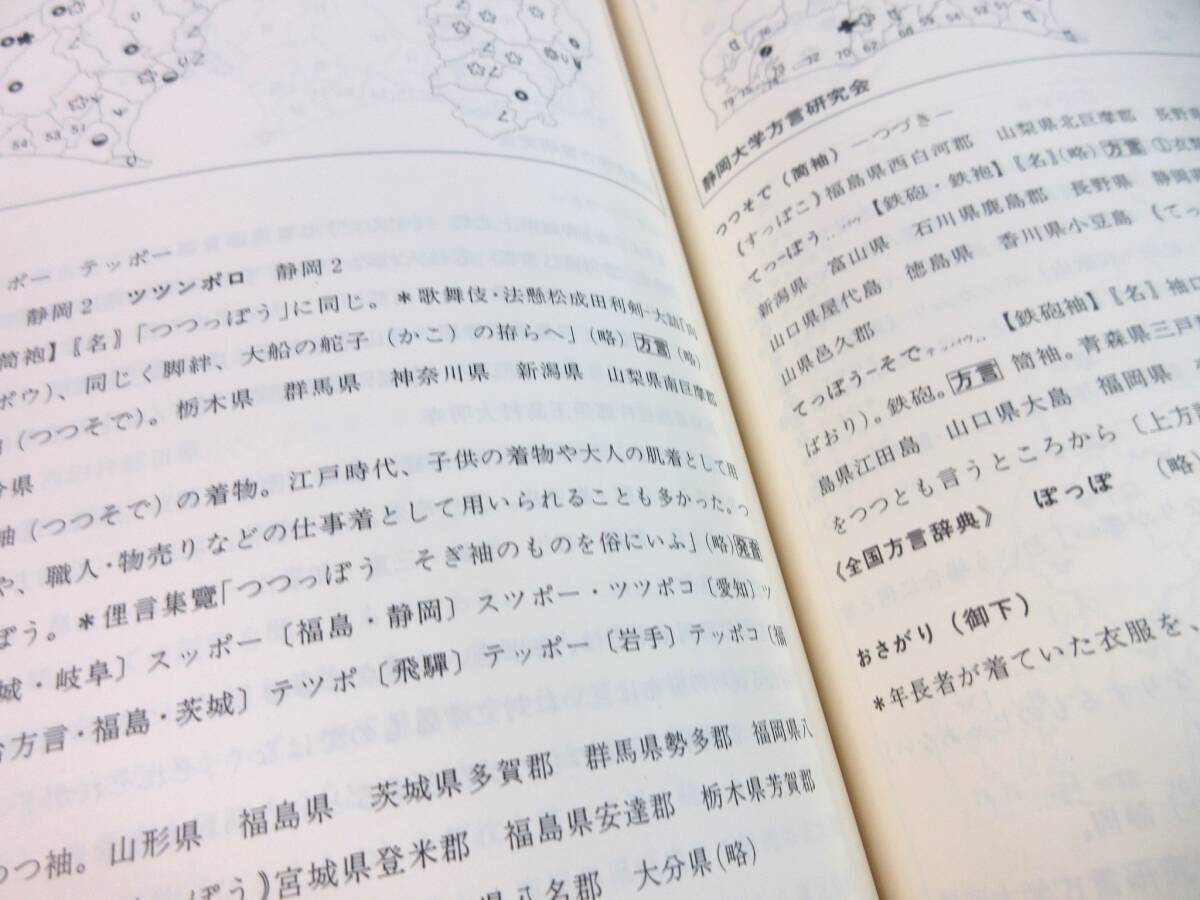 54 53 51
ボー テッポー
静岡2 ツツンボロ 静岡2
筒袍】〖名〗「つつっぽう」に同じ。*歌舞伎・法懸松成田利剣-大詰「同
ボウ)、同じく脚絆、大船の舵子(かこ)の拵らへ」(略)方言(略)
(つつそで)。栃木県 群馬県 神奈川県 新潟県 山梨県南巨摩郡
分県
袖(つつそで)の着物。江戸時代、子供の着物や大人の肌着として用
や、職人・物売りなどの仕事着として用いられることも多かった。つ
ぽう。*俚言集覧「つつっぽう そぎ袖のものを俗にいふ」(略)発音
城・岐阜〕スッポー〔福島・静岡〕スツポー・ツツポコ〔愛知〕ツ
方言・福島・茨城〕テツボ〔飛騨〕テッポー〔岩手〕テッポコ〔福
つつ袖。山形県 福島県 茨城県多賀郡 群馬県勢多郡 福岡県八
ぽう⦆宮城県登米郡 福島県安達郡 栃木県芳賀郡
県八名郡 大分県(略)
静岡大学方言研究会
つつそで(筒袖)―つづき―
(すっぽこ)福島県西白河郡 山梨県北巨摩郡 長野
てっぽう 【鉄砲・鉄袍】〖名〗(略)方言①衣
新潟県 富山県 石川県鹿島郡 長野県 静岡
山口県屋代島 徳島県 香川県小豆島 (てっ
山県邑久郡
てっぽう-そで 【鉄砲袖】〖名〗袖
ばおり)。鉄砲。方言筒袖。青森県三戸
島県江田島 山口県大島 福岡県
をつつとも言うところから〔上方
《全国方言辞典》 ぽっぽ (略)
おさがり(御下)
*年長者が着ていた衣服を、